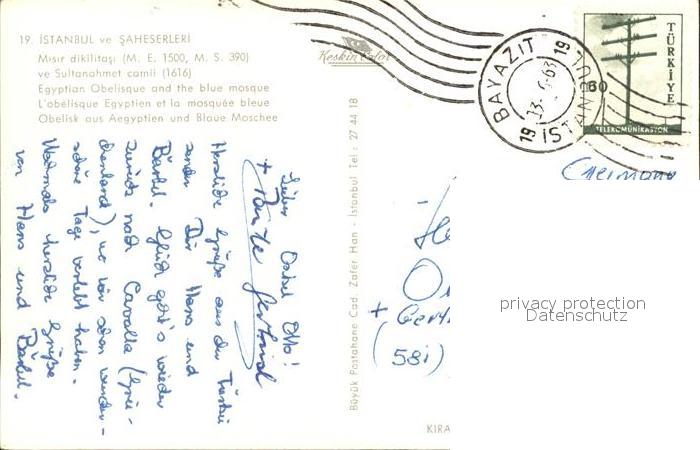 19. İSTANBUL ve ŞAHESERLERİ
Mısır dikilitaşı (M. E. 1500, M. S. 390)
ve Sultanahmet camii (1616)
Egyptian Obelisque and the blue mosque
L'obélisque Egyptien et la mosquée bleue
Obelisk aus Aegyptien und Blaue Moschee
Keskin Color
BAYAZIT
19 13. 6·63 19
İSTANBUL
TÜRKİYE
60
TELEKOMÜNİKASYON
Lieber Onkel Otto!
+ Tante Gertrud
Herzliche Grüße aus der Türkei
senden Dir Hans und
Bärbel. Gleich geht's wieder
zurück nach Cavalla (Grie-
chenland), wo wir schon wunder-
schöne Tage verlebt haben.
Nochmals herzliche Grüße
von Hans und Bärbel.
Büyük Postahane Cad. Zafer Han - İstanbul Tel : 27 44 18
+ Gert
(58i)
KIRA
privacy protection
Datenschutz